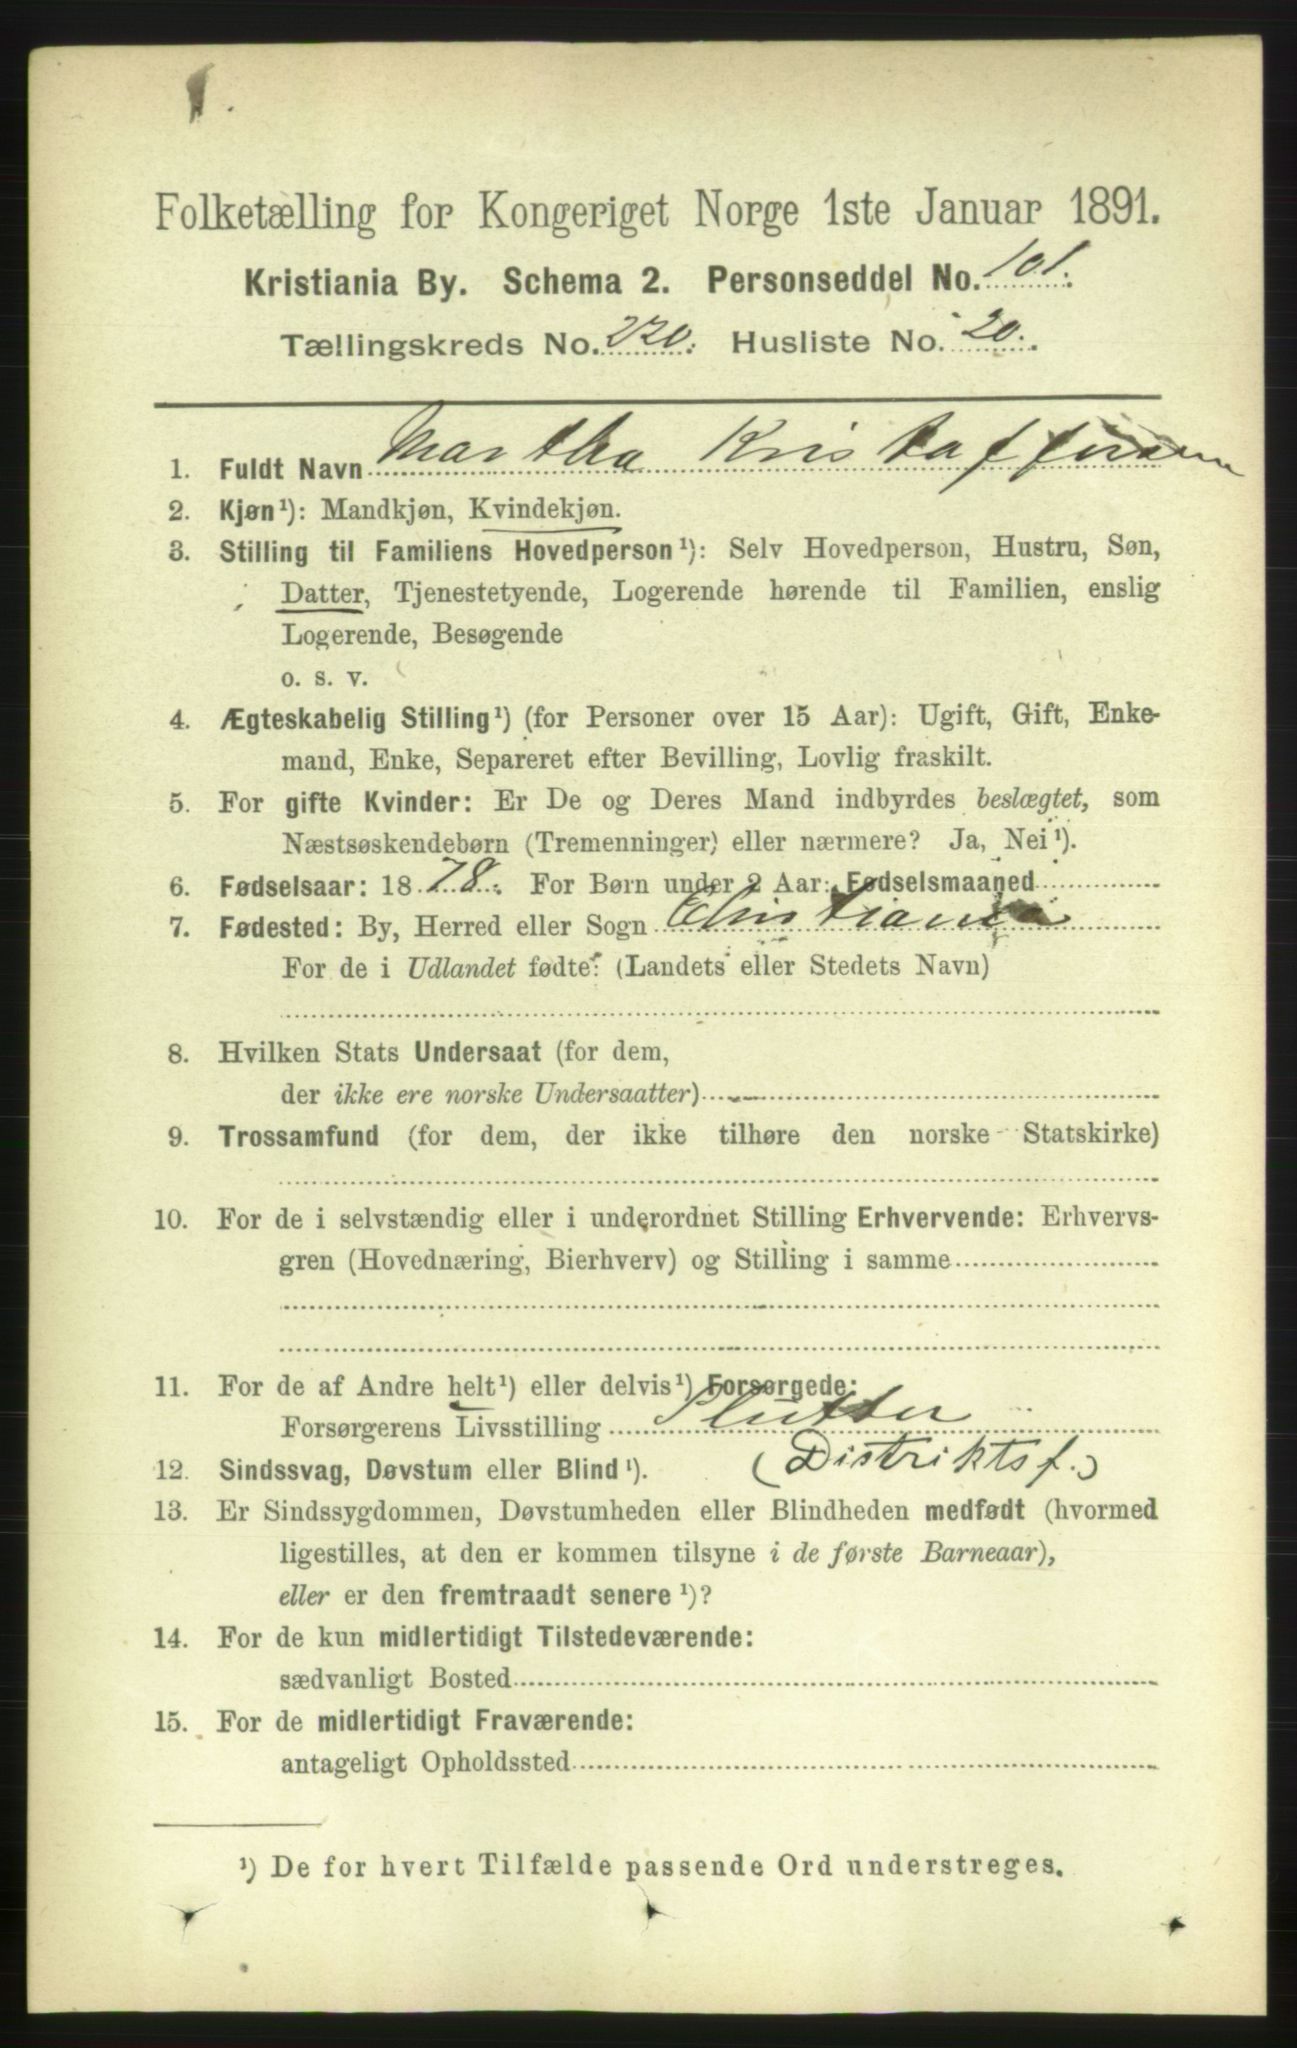 Folketælling for Kongeriget Norge 1ste Januar 1891.
Kristiania By. Schema 2. Personseddel No. 101.
Tællingskreds No. 220. Husliste No. 20.
1. Fuldt Navn Martha Kristaffersen
2. Kjøn¹): Mandkjøn, Kvindekjøn.
3. Stilling til Familiens Hovedperson¹): Selv Hovedperson, Hustru, Søn,
Datter, Tjenestetyende, Logerende hørende til Familien, enslig
Logerende, Besøgende
o. s. v.
4. Ægteskabelig Stilling¹) (for Personer over 15 Aar): Ugift, Gift, Enke-
mand, Enke, Separeret efter Bevilling, Lovlig fraskilt.
5. For gifte Kvinder: Er De og Deres Mand indbyrdes beslægtet, som
Næstsøskendebørn (Tremenninger) eller nærmere? Ja, Nei¹).
6. Fødselsaar: 1878. For Børn under 2 Aar: Fødselsmaaned
7. Fødested: By, Herred eller Sogn Christiania
For de i Udlandet fødte: (Landets eller Stedets Navn)
8. Hvilken Stats Undersaat (for dem,
der ikke ere norske Undersaatter)
9. Trossamfund (for dem, der ikke tilhøre den norske Statskirke)
10. For de i selvstændig eller i underordnet Stilling Erhvervende: Erhvervs-
gren (Hovednæring, Bierhverv) og Stilling i samme
11. For de af Andre helt¹) eller delvis¹) Forsørgede:
Forsørgerens Livsstilling Slutter
(Distriktsf.)
12. Sindssvag, Døvstum eller Blind¹).
13. Er Sindssygdommen, Døvstumheden eller Blindheden medfødt (hvormed
ligestilles, at den er kommen tilsyne i de første Barneaar),
eller er den fremtraadt senere¹)?
14. For de kun midlertidigt Tilstedeværende:
sædvanligt Bosted
15. For de midlertidigt Fraværende:
antageligt Opholdssted
¹) De for hvert Tilfælde passende Ord understreges.